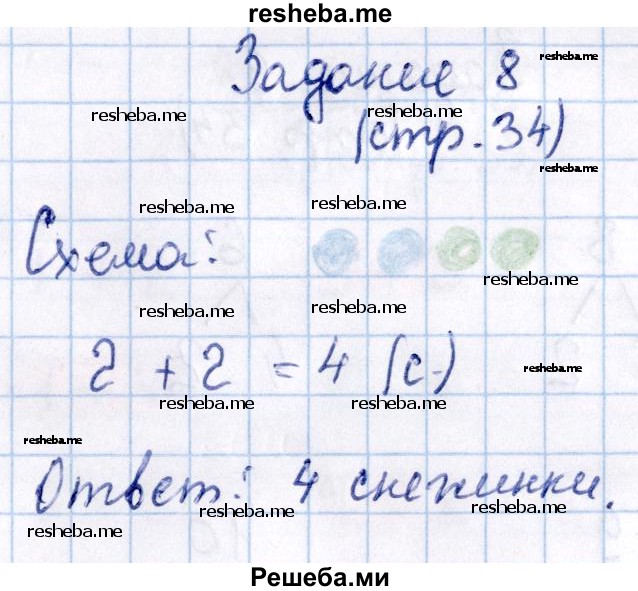 resheba.me
Задание 8
resheba.me
resheba.me
resheba.me
(стр. 34)
resheba.me
resheba.me
resheba.me
Схема:
resheba.me
resheba.me
resheba.me
2 + 2 = 4 (с.)
resheba.me
resheba.me
resheba.me
resheba.me
Ответ: 4 снежинки.
resheba.me
resheba.me
resheba.me
Решеба.ми